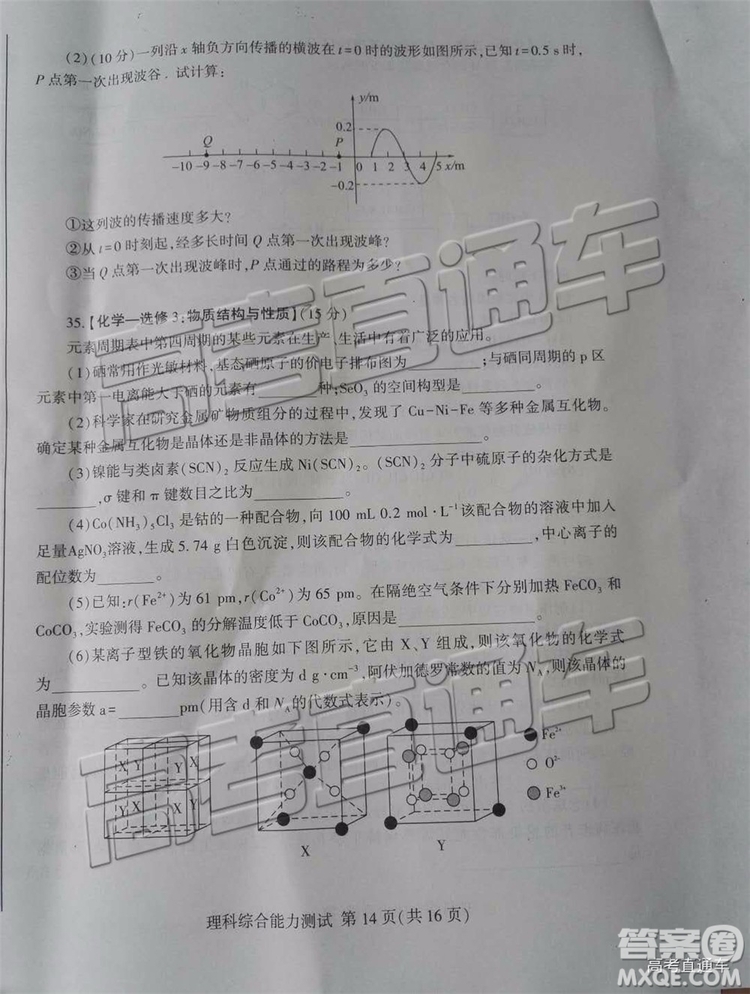 (2)(10分)一列沿x轴负方向传播的横波在t=0时的波形如图所示,已知t=0.5 s时,
P点第一次出现波谷．试计算:
y/m
0.2
Q
P
-10 -9 -8 -7 -6 -5 -4 -3 -2 -1 0 1 2 3 4 5 x/m
-0.2
①这列波的传播速度多大?
②从t=0时刻起,经多长时间Q点第一次出现波峰?
③当Q点第一次出现波峰时,P点通过的路程为多少?
35.【化学—选修3:物质结构与性质】(15分)
元素周期表中第四周期的某些元素在生产、生活中有着广泛的应用。
(1)硒常用作光敏材料,基态硒原子的价电子排布图为________;与硒同周期的p区
元素中第一电离能大于硒的元素有________种;SeO₃的空间构型是________。
(2)科学家在研究金属矿物质组分的过程中,发现了Cu-Ni-Fe等多种金属互化物。
确定某种金属互化物是晶体还是非晶体的方法是________。
(3)镍能与类卤素(SCN)₂反应生成Ni(SCN)₂。(SCN)₂分子中硫原子的杂化方式是
________,σ键和π键数目之比为________。
(4)Co(NH₃)₅Cl₃是钴的一种配合物,向100 mL 0.2 mol·L⁻¹该配合物的溶液中加入
足量AgNO₃溶液,生成5.74 g白色沉淀,则该配合物的化学式为________,中心离子的
配位数为________。
(5)已知:r(Fe²⁺)为61 pm,r(Co²⁺)为65 pm。在隔绝空气条件下分别加热FeCO₃和
CoCO₃,实验测得FeCO₃的分解温度低于CoCO₃,原因是________。
(6)某离子型铁的氧化物晶胞如下图所示,它由X、Y组成,则该氧化物的化学式
为________。已知该晶体的密度为d g·cm⁻³,阿伏加德罗常数的值为N_A,则该晶体的
晶胞参数a=________pm(用含d和N_A的代数式表示)。
X Y Y X
Y X X Y
Fe²⁺
O²⁻
Fe³⁺
X
Y
理科综合能力测试 第14页(共16页)
高考直通车
高考直通车
高考直通车
答案圈
MXQE.COM
高考直通车